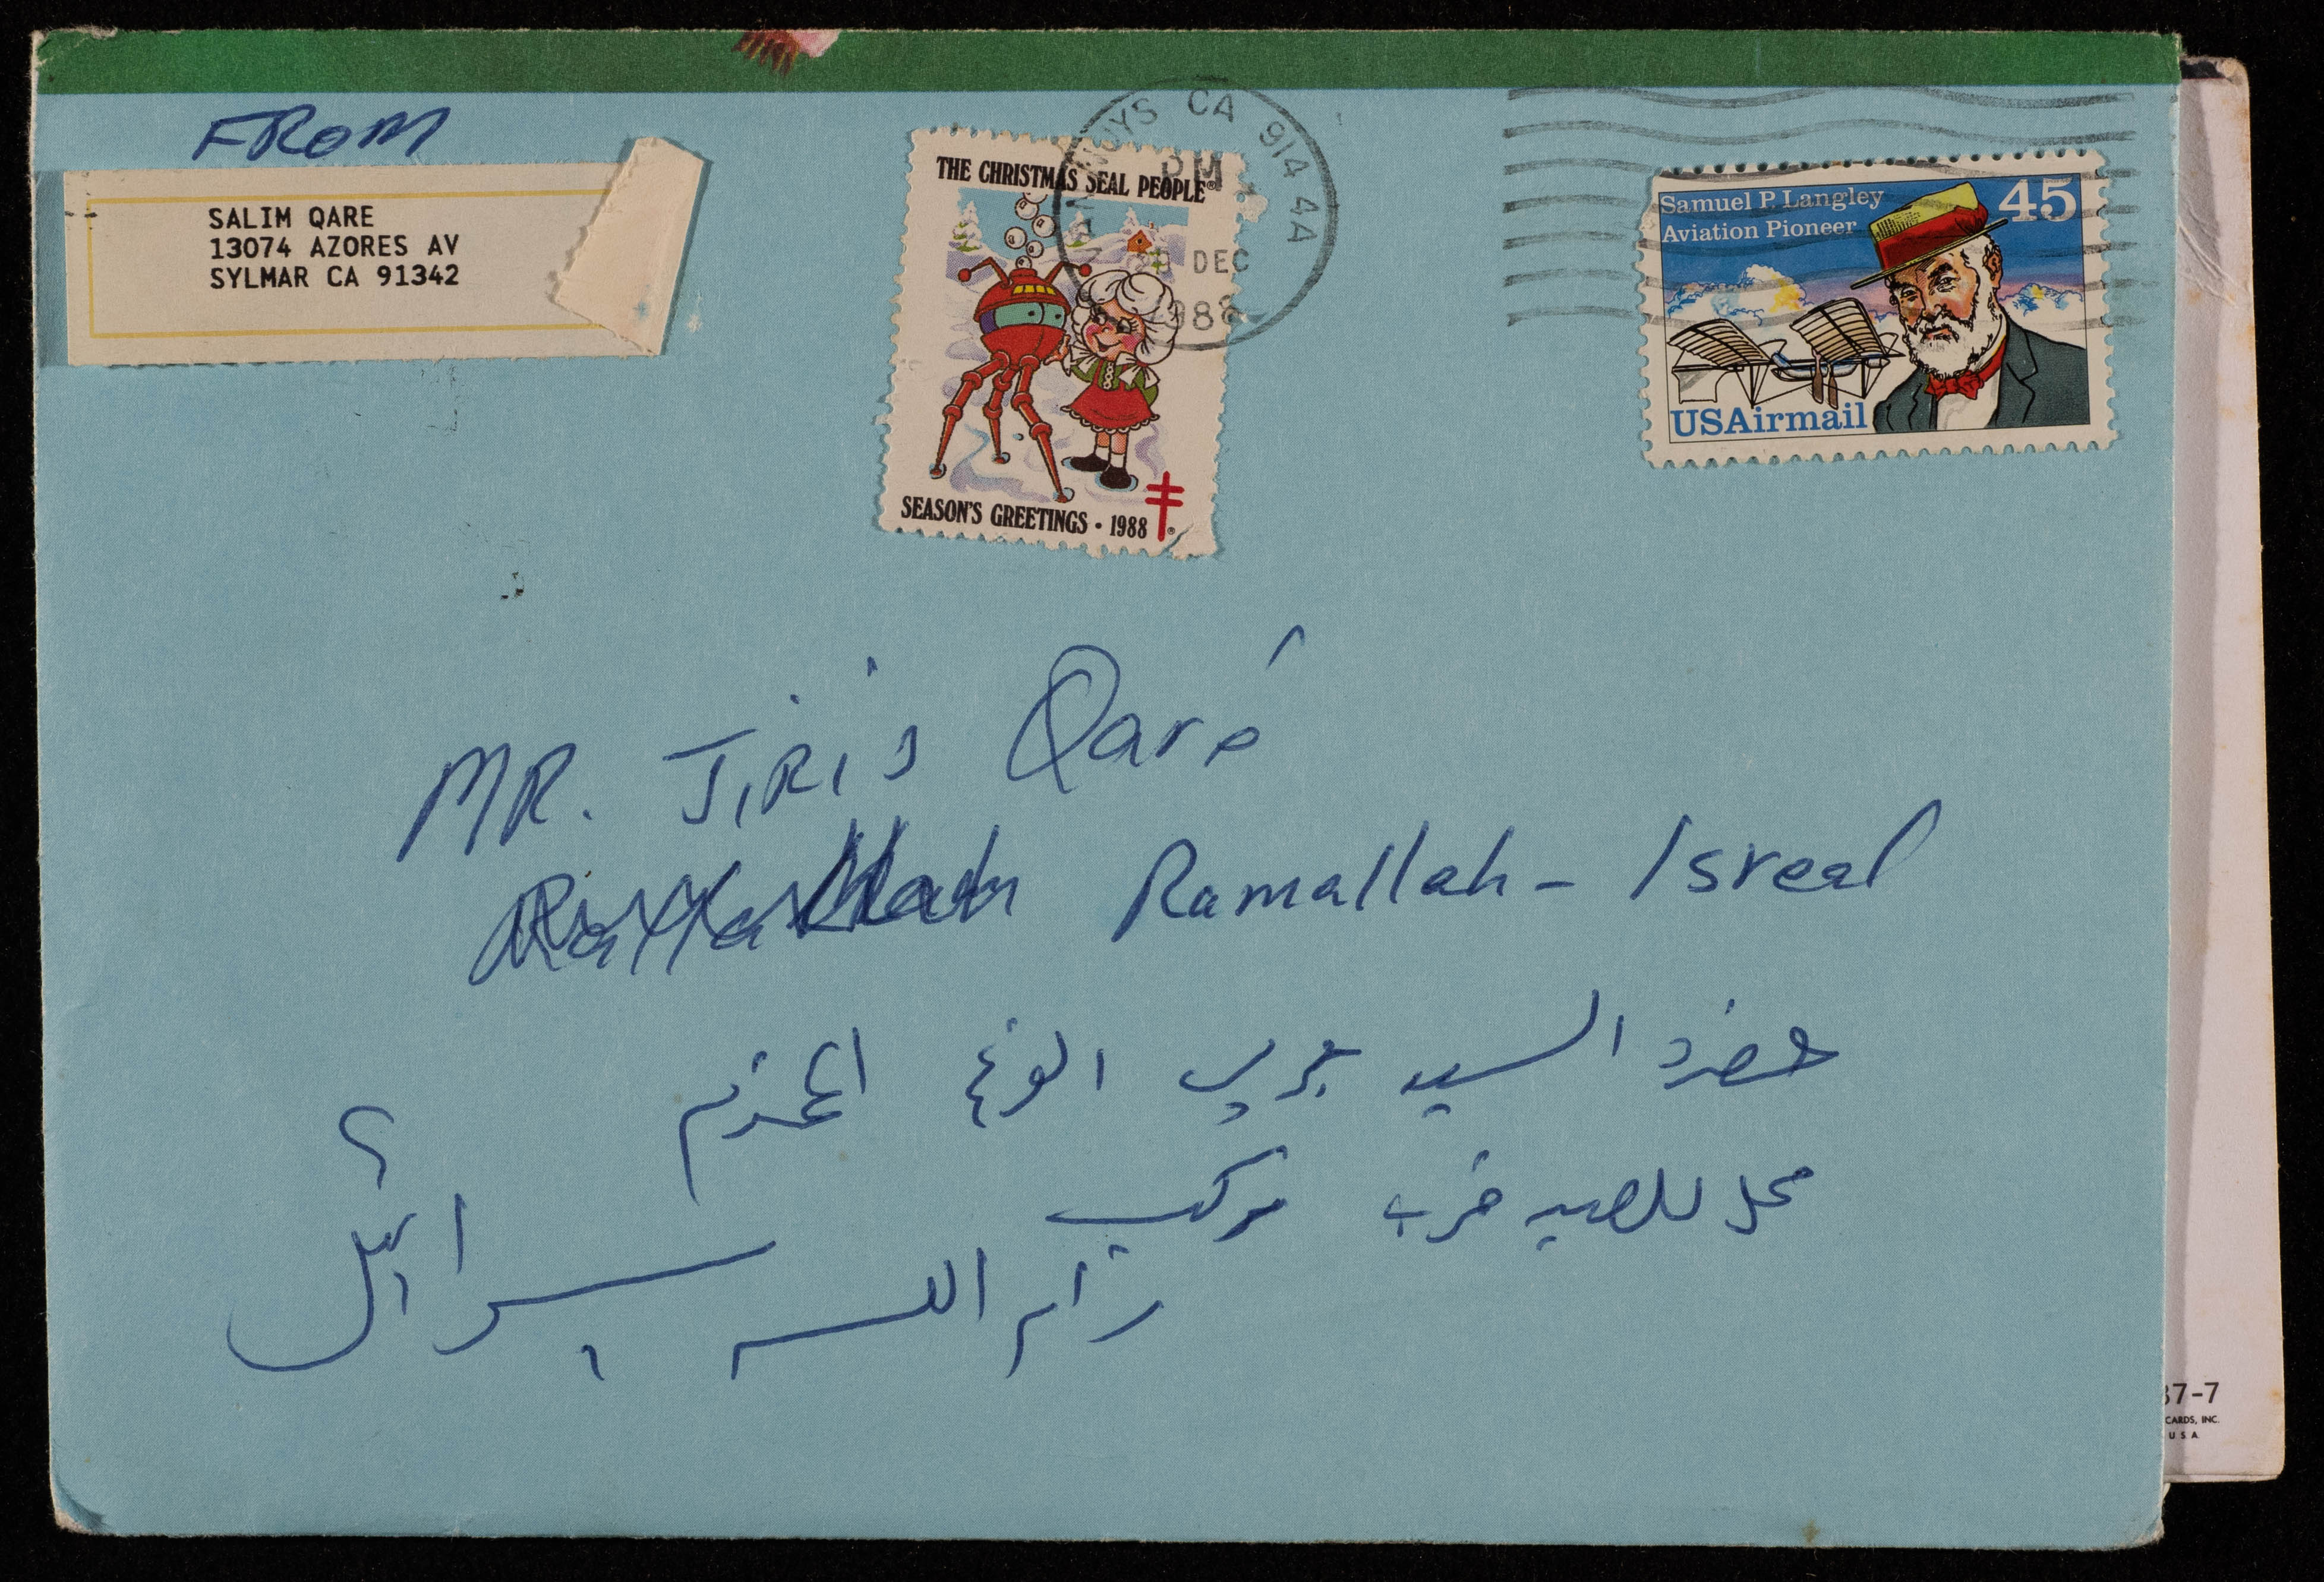 FROM
SALIM QARE
13074 AZORES AV
SYLMAR CA 91342
THE CHRISTMAS SEAL PEOPLE®
SEASON'S GREETINGS • 1988
VAN NUYS CA 914 4A
PM
DEC
1988
Samuel P. Langley
Aviation Pioneer
45
USAirmail
MR. Jiris Qaré
Ramallah - Isreal
حضرة السيد جريس القرع المحترم
محل للصيد قرب مركب
رام الله اسرائيل
37-7
CARDS, INC.
U S A